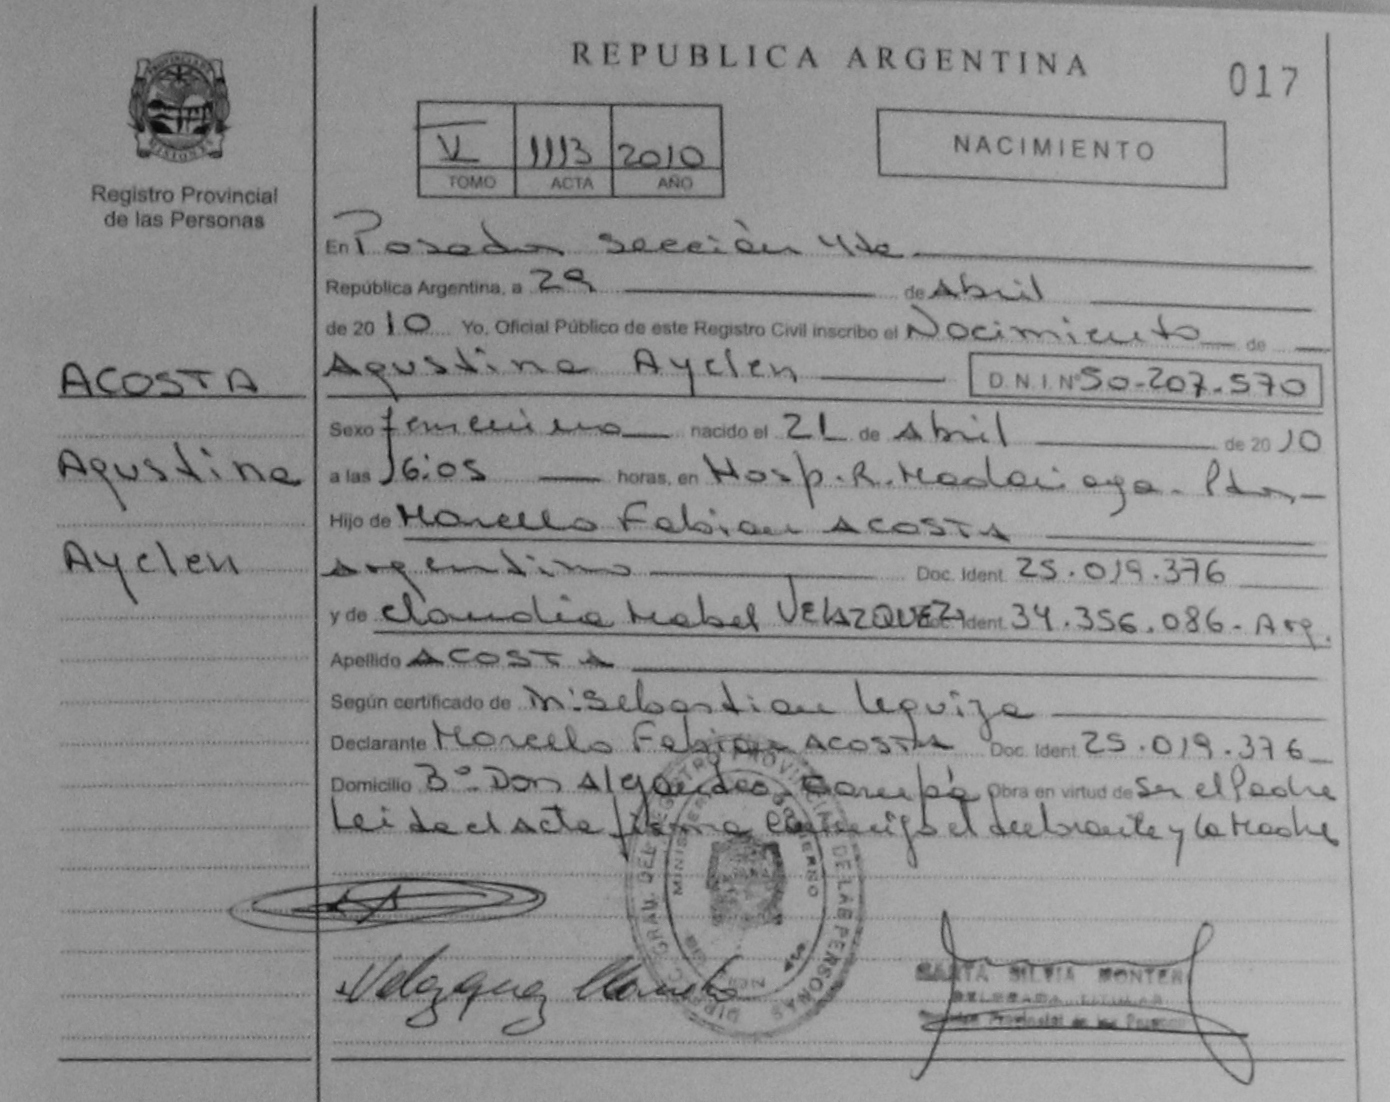 REPUBLICA ARGENTINA
017
PROVINCIA DE
MISIONES
Registro Provincial
de las Personas
V 1113 2010
TOMO ACTA AÑO
NACIMIENTO
En Posadas sección 4ta
República Argentina, a 29 de Abril
de 2010 Yo, Oficial Público de este Registro Civil inscribo el Nacimiento de
Agustina Ayelen D.N.I. Nº 50-207-570
Sexo femenino nacido el 21 de Abril de 2010
a las 16:05 horas, en Hosp. R. Madariaga - Pdas,-
Hijo de Marcelo Fabian ACOSTA
Argentino Doc. Ident. 25.019.376
y de Claudia Mabel VELAZQUEZ Doc. Ident. 34.356.086 - Arg.
Apellido ACOSTA
Según certificado de M: Sebastian Leguiza
Declarante Marcelo Fabian ACOSTA Doc. Ident. 25.019.376
Domicilio Bº Don Garupá Obra en virtud de Ser el Padre
Leída el Acta firma conmigo el declarante y la Madre
ACOSTA
Agustina
Ayelen
Velazquez
REGISTRO PROVINCIAL DE LAS PERSONAS
MINISTERIO DE GOBIERNO
SILVIA MONTER
DELEGADA TITULAR
Provincial de las Personas